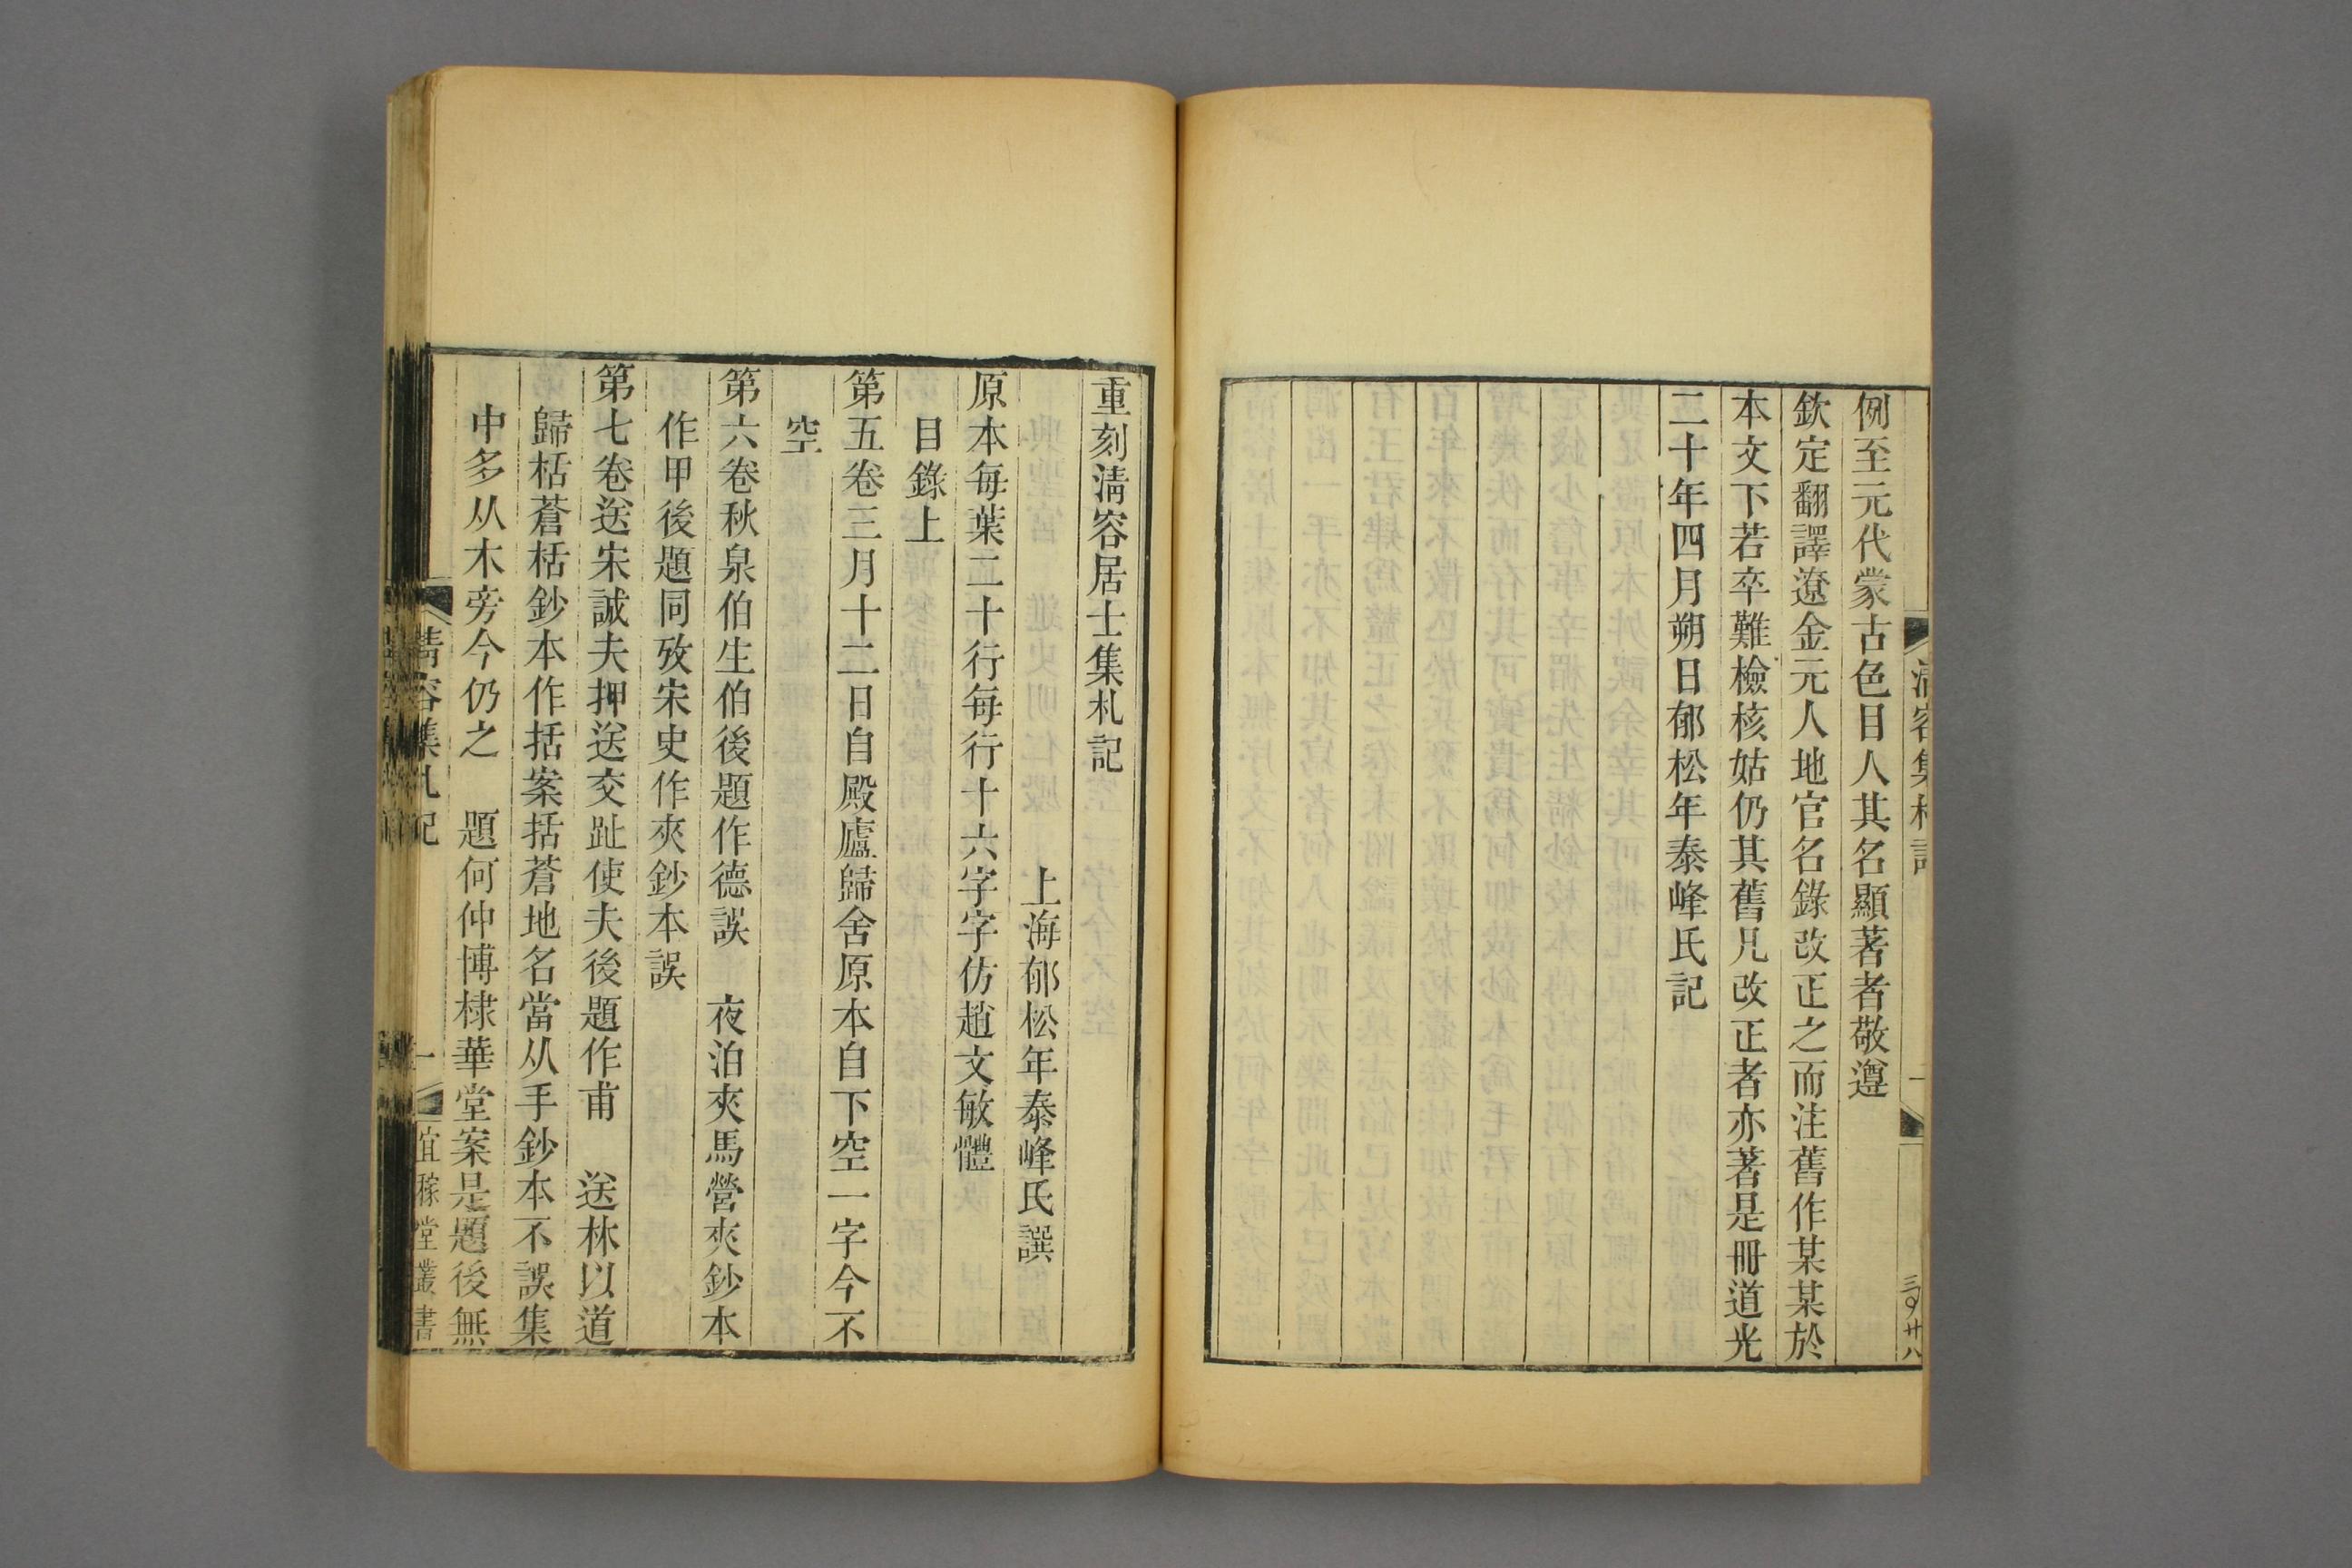 例至元代蒙古色目人其名顯著者敬遵
欽定翻譯遼金元人地官名錄改正之而注舊作某某於
本文下若卒難檢核姑仍其舊凡改正者亦著是冊道光
二十年四月朔日郁松年泰峰氏記
重刻清容居士集札記
上海郁松年泰峰氏譔
原本每葉二十行每行十六字字仿趙文敏體
目錄上
第五卷三月十二日自殿廬歸舍原本自下空一字今不
空
第六卷秋泉伯生伯後題作德誤　夜泊夾馬營夾鈔本
作甲後題同攷宋史作夾鈔本誤
第七卷送宋誠夫押送交趾使夫後題作甫　送林以道
歸栝蒼栝鈔本作括案括蒼地名當从手鈔本不誤集
中多从木旁今仍之　題何仲博棣華堂案是題後無
清容集札記
一
宜稼堂叢書